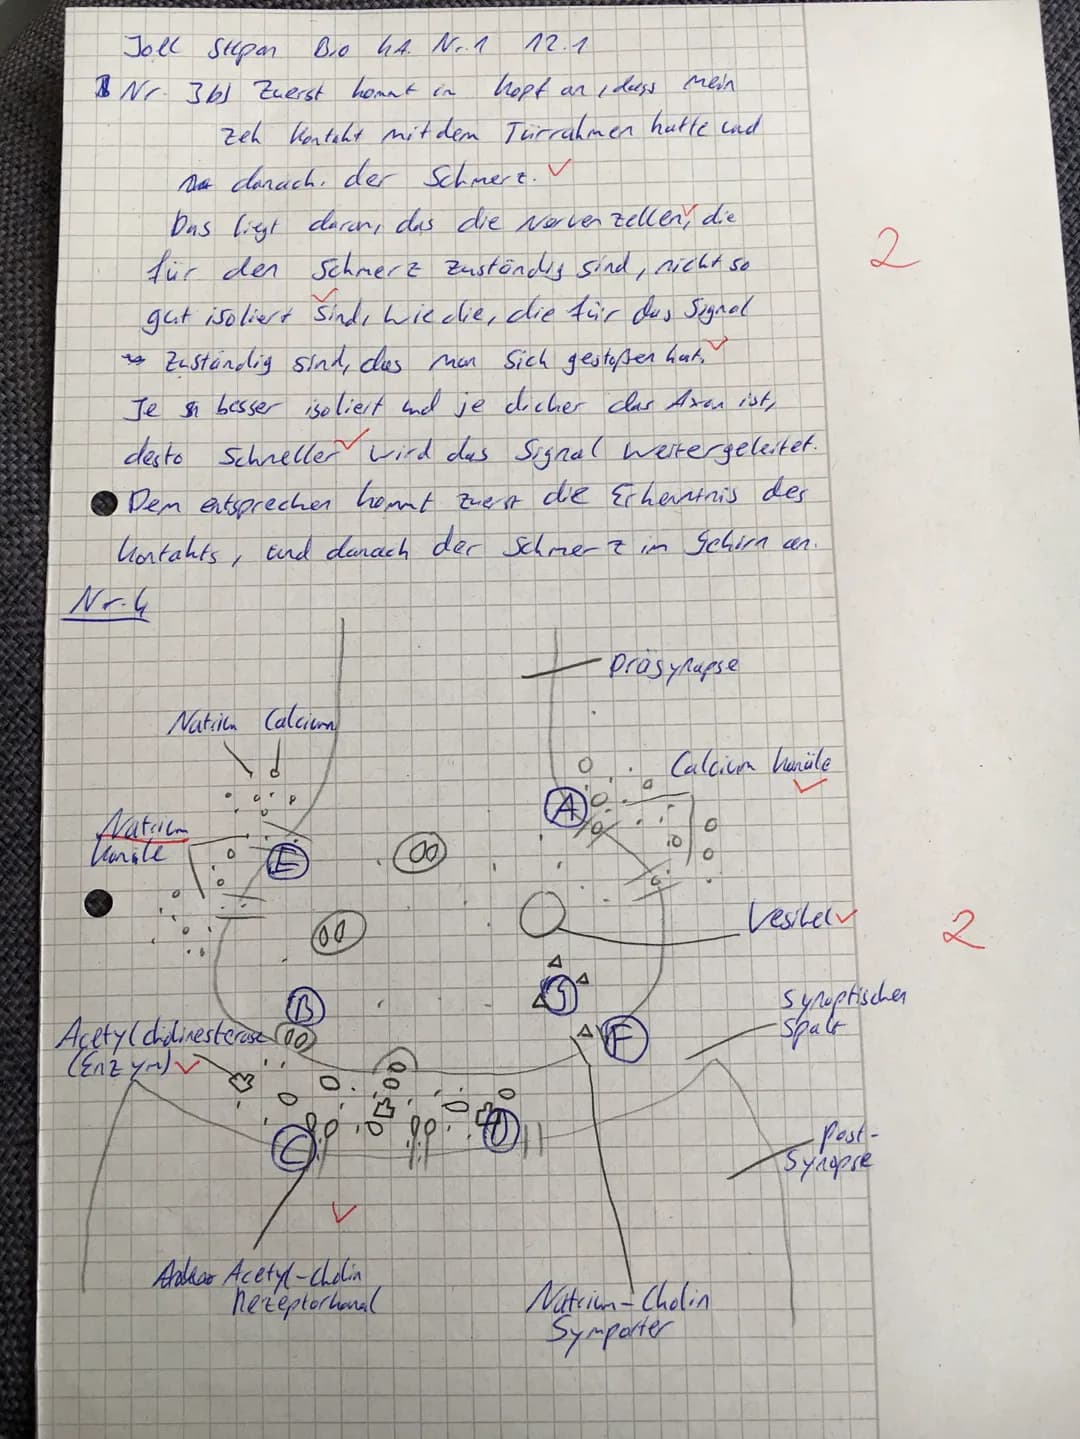 Joel Stepan Bio HA Nr.1 12.1
Nr. 3b) Zuerst kommt im Kopf an, dass mein
Zeh Kontakt mit dem Türrahmen hatte und
danach der Schmerz.
Das liegt daran, das die Nervenzellen, die
für den Schmerz zuständig sind, nicht so
gut isoliert sind, wie die, die für das Signal
zuständig sind, das man sich gestoßen hat.
Je besser isoliert und je dicker das Axon ist,
desto schneller wird das Signal weitergeleitet.
Dem entsprechen kommt zuerst die Erkenntnis des
Kontakts, und danach der Schmerz im Gehirn an.
2
Nr. 4
Präsynapse
Natrium Calcium
Calcium kanäle
A
Natrium
kanäle
E
Vesikel
2
G
B
Synaptischer
Spalt
F
Acetylcholinesterase
(Enzym)
C
D
Post-
Synapse
Acetyl-cholin
Rezeptorkanal
Natrium-Cholin
Symporter